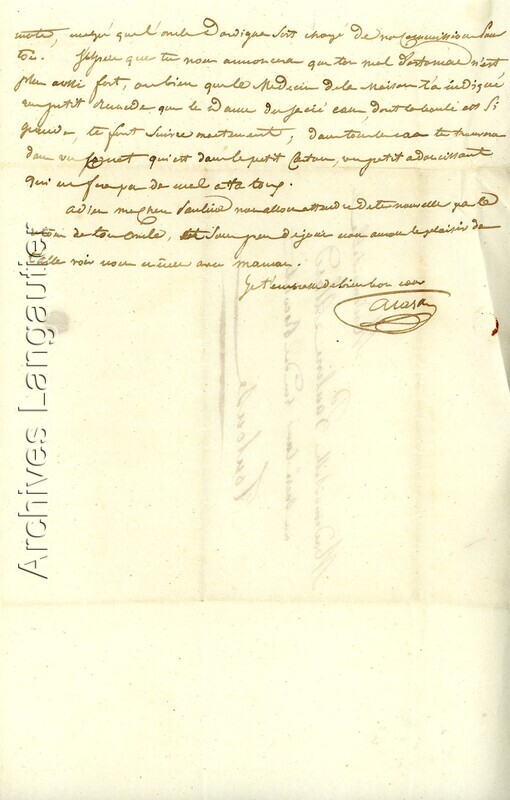 malgré que l'oncle soit chargé de nos commissions pour
toi. J'espère que tu nous annoncera que ton mal d'estomac n'est
plus aussi fort, ou bien que le Medecin de la Maison t'a indiqué
un petit remede que les Dames du sacré coeur, dont la bonté est si
grande, te font suivre exactement, dans tous les cas tu trouvera
dans un qui est dans le petit Carton, un petit adoucissant
qui ne fera pas de mal a ta toux.
adieu ma chere Pauline nous allons attendre de tes nouvelles par le
de ton oncle, et sous peu de jours nous aurons le plaisir de
voir avec maman.
Je t'embrasse de bien bon coeur
Archives Langautier
Mademoiselle Pauline
Toulouse